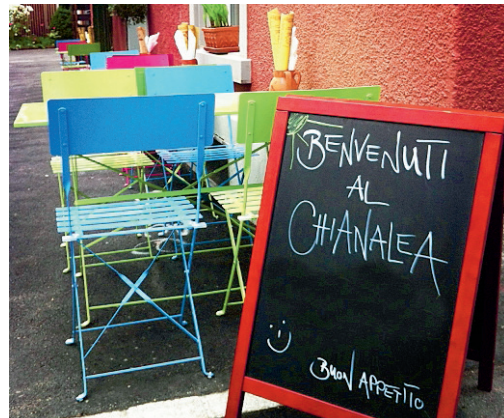 BENVENUTI
AL
CHIANALEA
BUON APPETITO